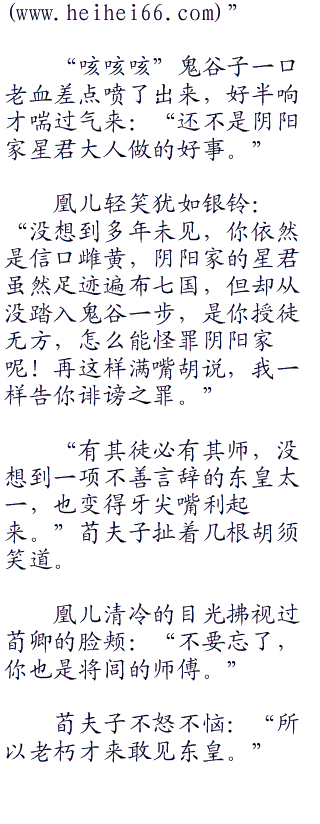 (www.heihei66.com)”
“咳咳咳”鬼谷子一口
老血差点喷了出来，好半响
才喘过气来：“还不是阴阳
家星君大人做的好事。”
凰儿轻笑犹如银铃：
“没想到多年未见，你依然
是信口雌黄，阴阳家的星君
虽然足迹遍布七国，但却从
没踏入鬼谷一步，是你授徒
无方，怎么能怪罪阴阳家
呢！再这样满嘴胡说，我一
样告你诽谤之罪。”
“有其徒必有其师，没
想到一项不善言辞的东皇太
一，也变得牙尖嘴利起
来。”荀夫子扯着几根胡须
笑道。
凰儿清冷的目光拂视过
荀卿的脸颊：“不要忘了，
你也是将闾的师傅。”
荀夫子不怒不恼：“所
以老朽才来敢见东皇。”